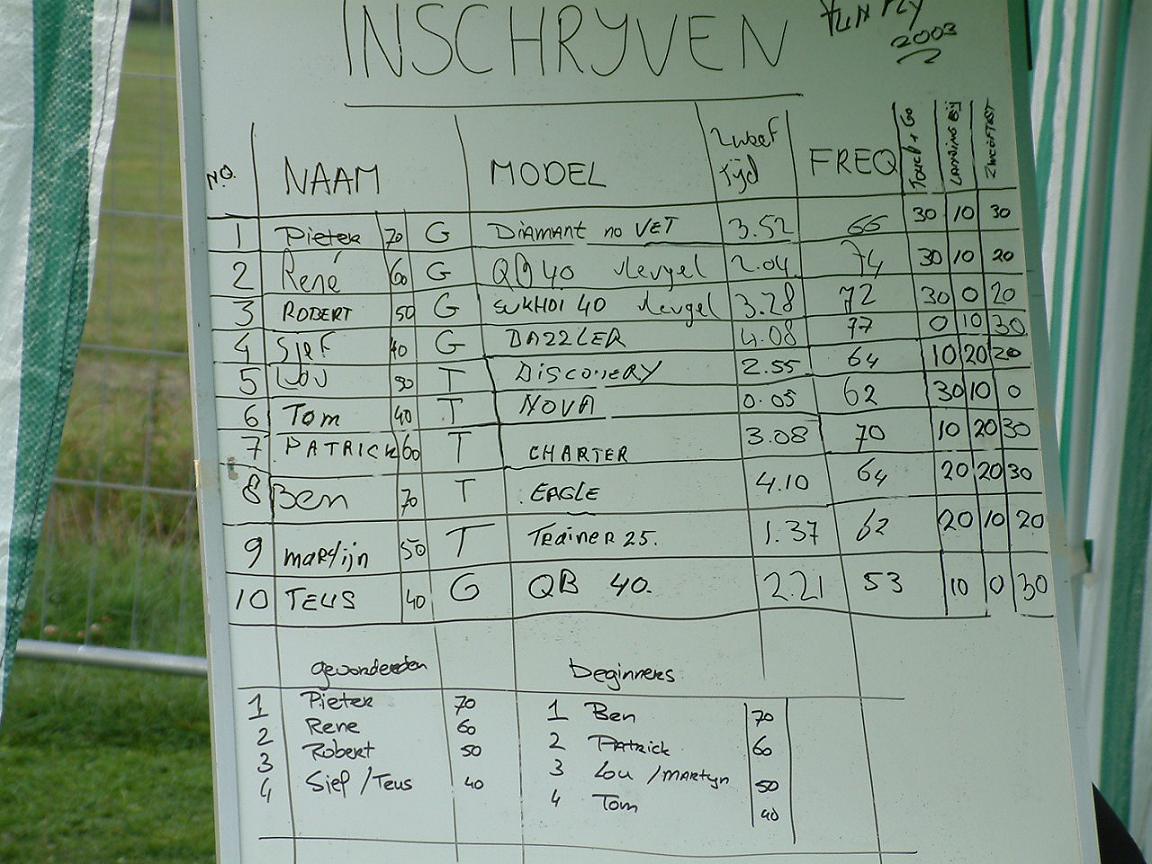 INSCHRYVEN FUN FLY
2003
NO. NAAM MODEL Zweef tijd FREQ TOUCH + GO LANDING BIJ ZWEEFTIJD
1 Pieter 70 G DIAMANT no VET 3.52 66 30 10 30
2 René 60 G QB 40 vleugel 2.04 74 30 10 20
3 ROBERT 50 G SUKHOI 40 vleugel 3.28 72 30 0 20
4 Sjef 40 G DAZZLER 4.08 77 0 10 30
5 Lou 50 T DISCOVERY 2.55 64 10 20 20
6 Tom 40 T NOVA 0.05 62 30 10 0
7 PATRICK 60 T CHARTER 3.08 70 10 20 30
8 Ben 70 T EAGLE 4.10 64 20 20 30
9 martijn 50 T Trainer 25. 1.37 62 20 10 20
10 TEUS 40 G QB 40. 2.21 53 10 0 30
gevorderden beginners
1 Pieter 70 1 Ben 70
2 Rene 60 2 Patrick 60
3 Robert 50 3 Lou / martyn 50
4 Sjef / Teus 40 4 Tom 40